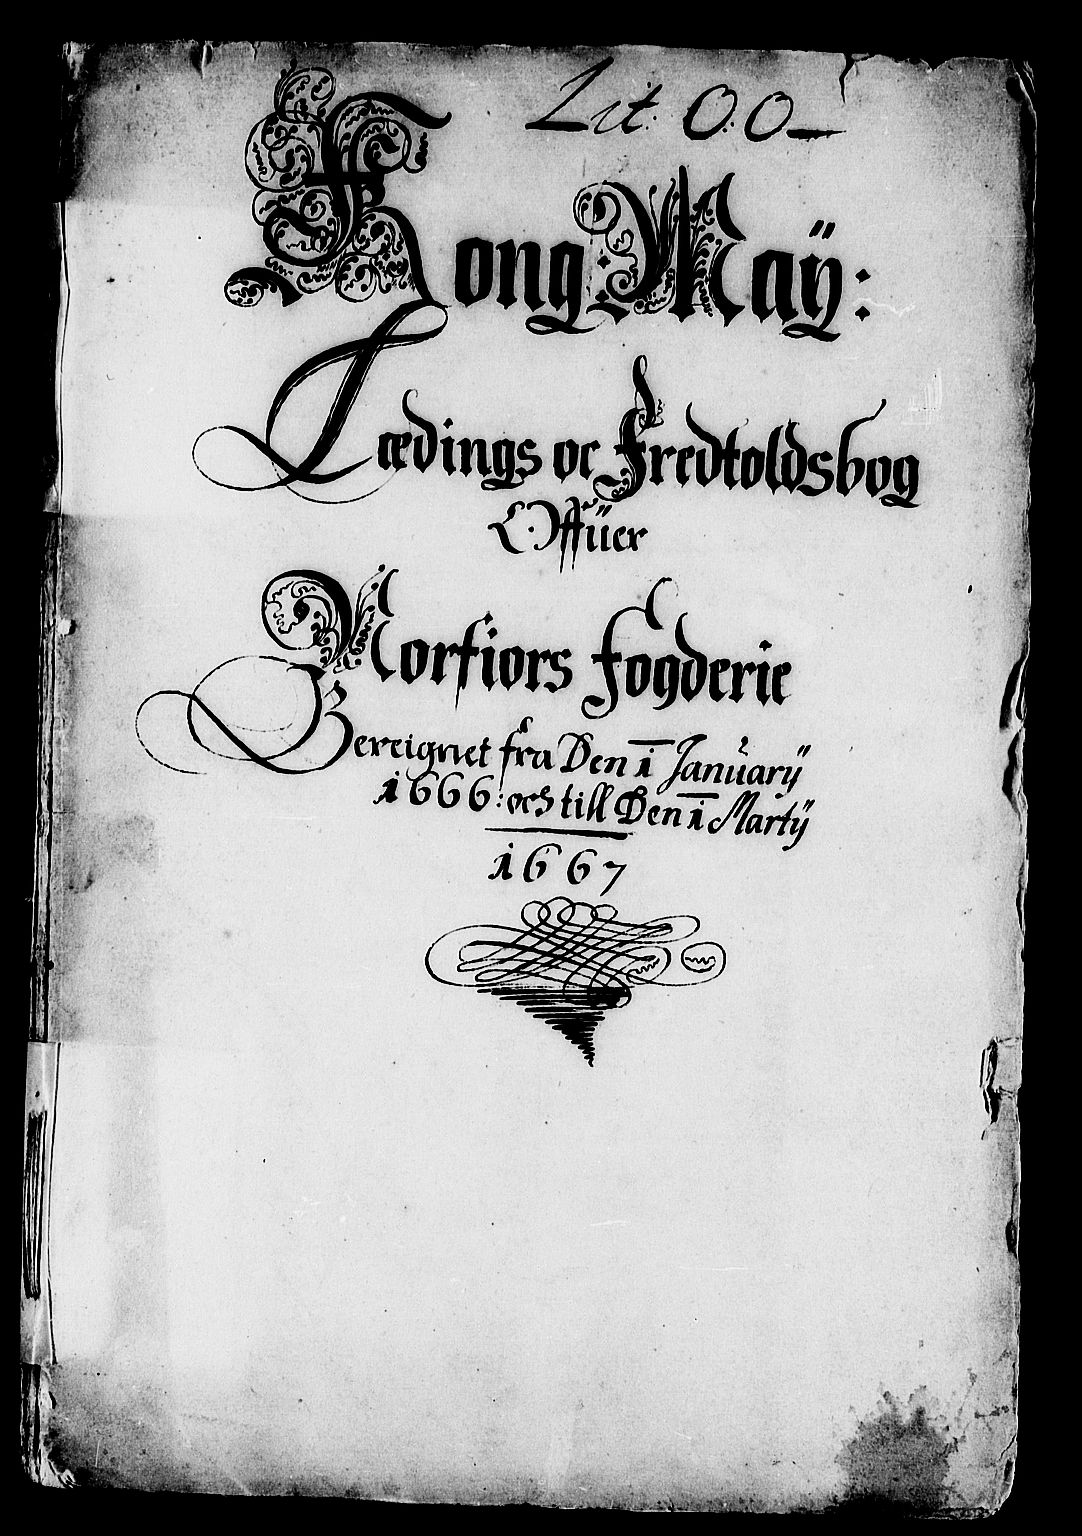 Lit: O:O
Kong: Maÿ:
Lædings oc Fredtoldsbog
Offüer
Norfiors fogderie
Bereignet fra Den 1 Januarÿ
1666: och till Den 1 Martÿ
1667